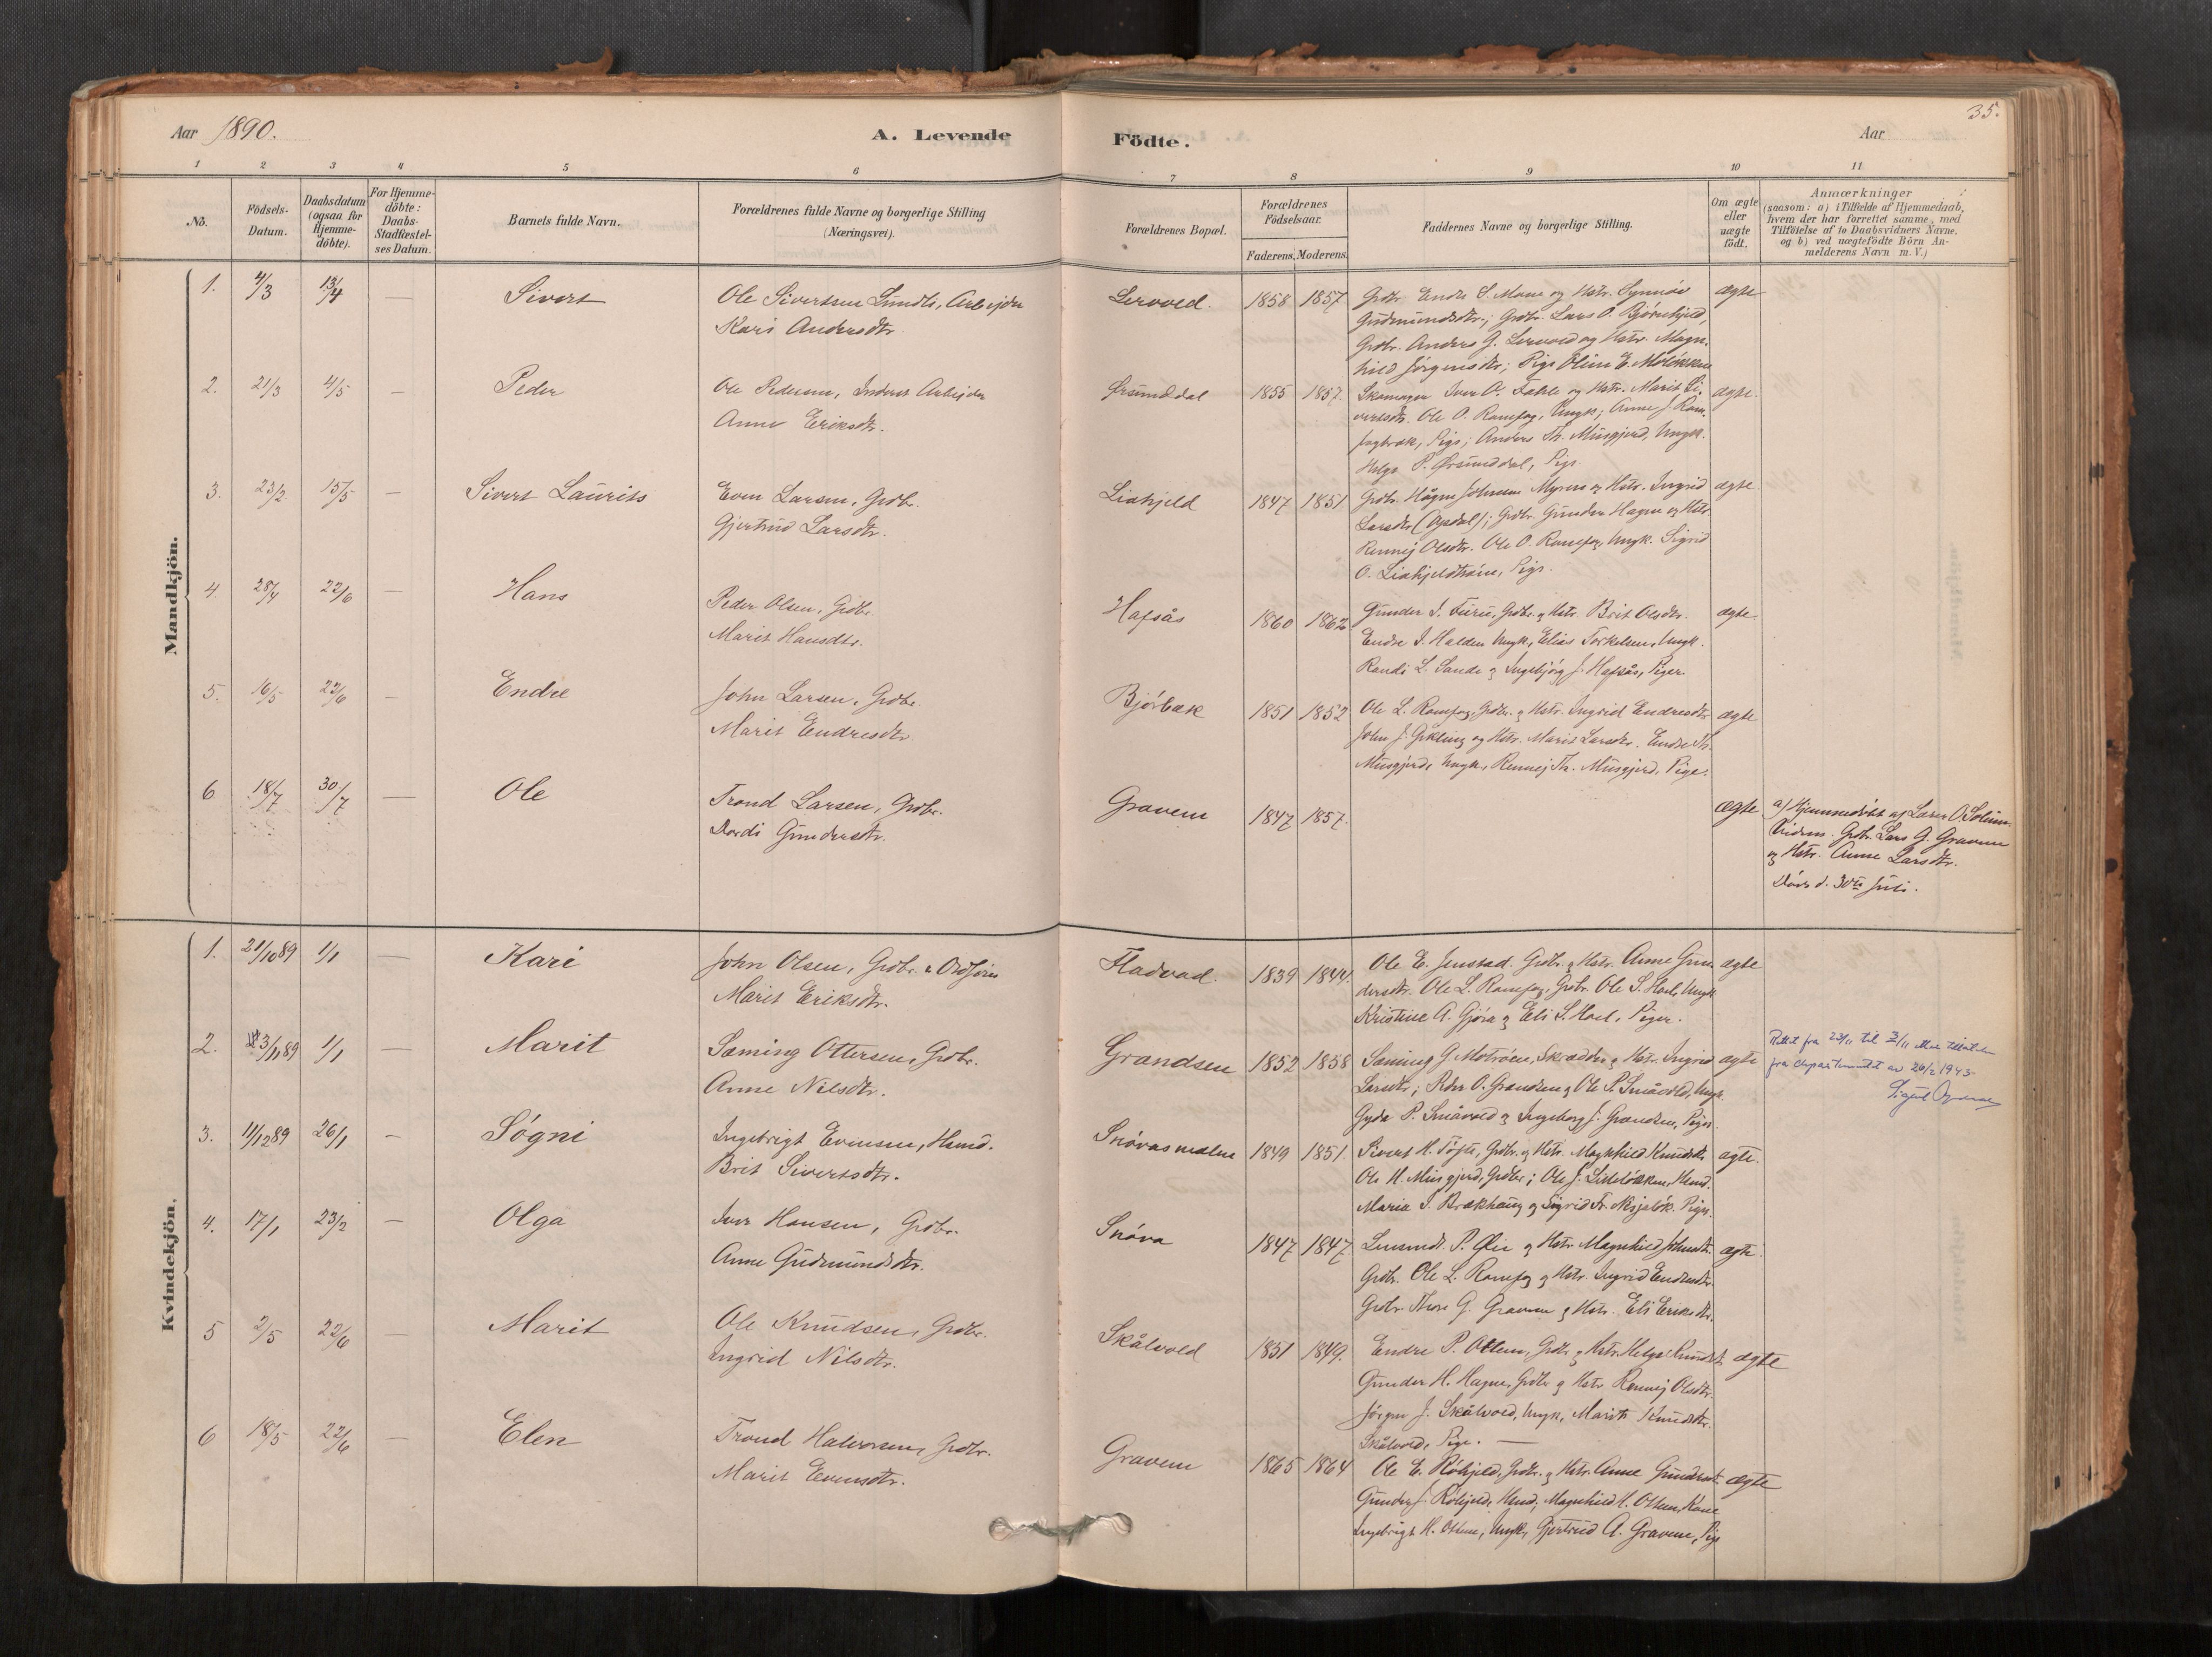 Aar 1890.
A. Levende
Födte.
Aar
35.
1 2 3 4 5 6 7 8 9 10 11
No.
Födsels-Datum.
Daabsdatum (ogsaa for Hjemme-döbte).
For Hjemme-döbte: Daabs-Stadfæstel-ses Datum.
Barnets fulde Navn.
Forældrenes fulde Navne og borgerlige Stilling (Næringsvei).
Forældrenes Bopæl.
Forældrenes Födselsaar.
Faderens. Moderens.
Faddernes Navne og borgerlige Stilling.
Om ægte eller uægte födt.
Anmærkninger (saasom: a) i Tilfælde af Hjemmedaab, hvem der har forrettet samme, med Tilföielse af to Daabsvidners Navne, og b) ved uægtefödte Börn An-melderens Navn m. V.)
Mandkjön.
1. 4/3 13/4 — Sivert
Ole Sivertsen Lunds, Arbejder
Kari Andersdtr.
Lervold. 1858 1857
Grdbr. Endre S. Moen og Hstr. Synnöv
Gudmundsdtr.; Grdbr. Lars O. Björnhjeld,
Grdbr. Anders G. Lervold og Hstr. Magn-
hild Jörgensdtr; Pige
ægte
2. 21/3 4/5 — Peder
Ole Pedersen, Inderst Arbejder
Anne Eriksdtr.
Ørsunddal 1855 1857.
Skomager Iver O. Fahle og Hstr. Marit Si-
vertsdtr. Ole O. Ramsfog, Ungk; Anne J. Ram-
Pige; Anders Th. Musgjerd, Ungk.
Helga P. Ørsunddal, Pige.
ægte.
3. 23/2 15/5 — Sivert Laurits
Even Larsen, Grdbr.
Gjertrud Larsdtr.
Liahjeld 1847 1851
Grdbr. Hågen Johnsen Myren og Hstr. Ingrid
Larsdtr (Opdal); Grdbr. Gunder Hagen og Hstr
Rennej Olsdtr. Ole O. Ramsfog, Ungk. Sigrid
O. Liahjeldtrøen, Pige.
ægte.
4. 28/4 22/6 — Hans
Peder Olsen, Grdbr.
Marit Hansdtr.
Hafsås 1860 1862
Gunder I. Furu, Grdbr. og Hstr. Brit Olsdtr.
Endre I. Halden Ungk, Elias Torkelsen, Ungk.
Randi L. Sande og Ingebjörg J. Hafsås, Piger.
ægte.
5. 16/5 22/6 — Endre
John Larsen, Grdbr.
Marit Endresdtr
Bjørbæk 1851 1852
Ole L. Ramsfog, Grdbr. og Hstr. Ingrid Endresdtr
John J. Gikling og Hstr. Marit Larsdtr. Endre Th.
Musgjerd, Ungk, Rennej Th. Musgjerd, Pige.
ægte
6 18/7 30/7 — Ole
Trond Larsen, Grdbr.
Dordi Gundersdtr.
Gravem 1847 1857.
ægte
a) Hjemmedöbt af Lærer O. Solem.
Vidner. Grdbr. Lars G. Gravem
og Hstr. Anne Larsdtr.
Döde d. 30te Juli.
Kvindekjön.
1. 21/10 89 1/1 — Kari
John Olsen, Grdbr. & Ordförer
Marit Eriksdtr.
Fladvad. 1839 1844.
Ole E. Jenstad. Grdbr. og Hstr. Anne Gun-
dersdtr. Ole L. Ramsfog, Grdbr. Ole S. Hoel, Ungk
Kristine A. Gjöra og Eli S. Hoel, Piger.
ægte
2. 3/11 89 1/1 — Marit
Sæming Ottersen, Grdbr.
Anne Nilsdtr.
Grandsen 1852 1858
Sæming G. Motröen, Skrædder og Hstr. Ingrid
Larsdtr; Peder O. Grandsen og Ole P. Småvold, Ungk.
Gyda P. Småvold og Ingeborg J. Grandsen, Piger.
ægte
Rettet fra 23/11 til 3/11 etter tillatelse
fra departementet av 26/2 1943.
3. 11/12 89 26/1 — Sögni
Ingebrigt Evensen, Husmd.
Brit Sivertsdtr.
Snövasmælen 1849 1851.
Sivert H. Grdbr. og Hstr. Magnhild Knudsdtr.
Ole H. Musgjerd, Grdbr.; Ole J. Husmd.
Maria I. Brækhaug og Sigrid Fr. Piger.
ægte.
4. 17/1 23/2 — Olga
Iver Hansen, Grdbr.
Anne Gudmundsdtr.
Snöva 1847 1847
Lensmd. P. Øie og Hstr. Magnhild Johnsdtr.
Grdbr. Ole L. Ramsfog og Hstr. Ingrid Endresdtr.
Grdbr. Thore G. Gravem og Hstr. Eli Eriksdtr.
ægte.
5 2/5 22/6 — Marit
Ole Knudsen, Grdbr.
Ingrid Nilsdtr.
Skålvold 1851 1849.
Endre P. Ottem, Grdbr. og Hstr. Helga
Gunder H. Hagen, Grdbr og Hstr Rennej Olsdtr.
Jörgen J. Skålvold, Ungk, Marit Knudsdtr.
Skålvold, Pige. —
ægte
6 18/5 22/6 — Elen
Trond Halvorsen, Grdbr.
Marit Evensdtr.
Gravem 1865 1864
Ole E. Röhjeld, Grdbr. og Hstr. Anne Gundersdtr
Gunder J. Röhjeld, Husmd; Magnhild H. Ottem, Kone
Ingebrigt H. Ottem, Ungk, Gjertrud A. Gravem, Pige
ægte